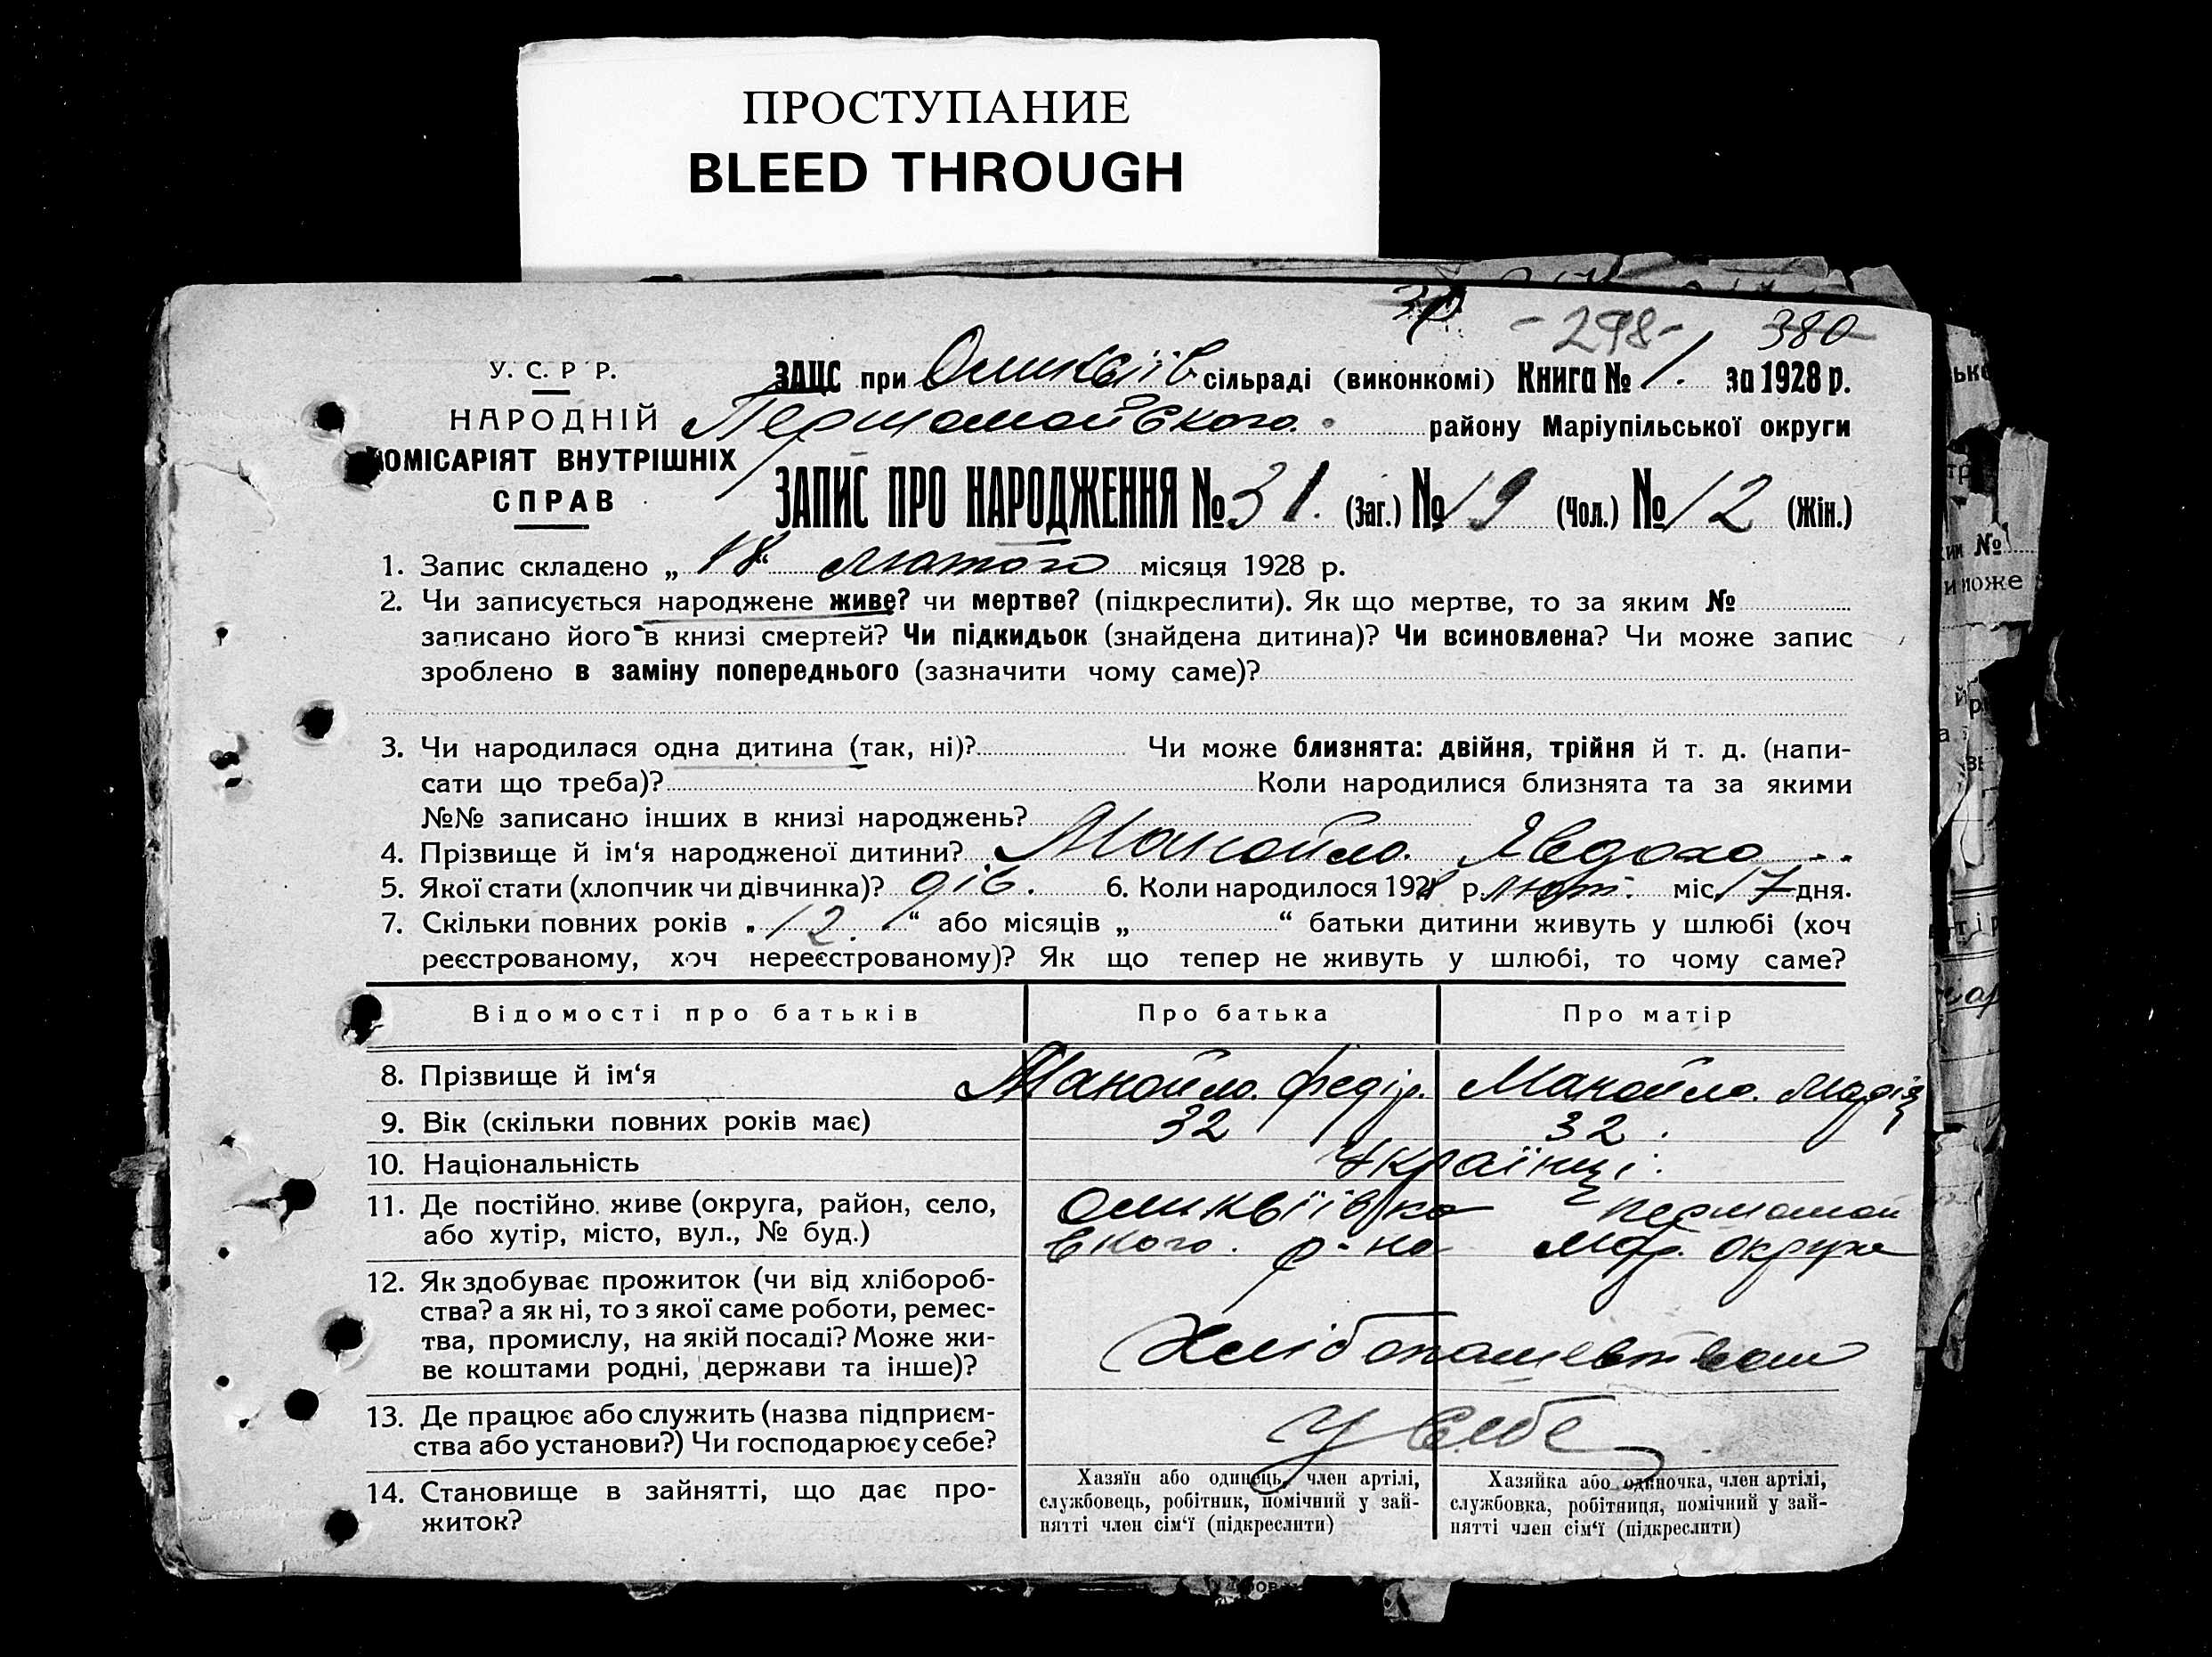 ПРОСТУПАНИЕ
BLEED THROUGH
- 298 - 380
У. С. Р Р.
НАРОДНІЙ
КОМІСАРІЯТ ВНУТРІШНІХ
СПРАВ
ЗАЦС при сільраді (виконкомі) Книга № 1. за 1928 р.
Першомайського району Маріупільської округи
ЗАПИС ПРО НАРОДЖЕННЯ № 31. (Заг.) № 19 (Чол.) № 12 (Жін.)
1. Запис складено „ 18 “ лютого місяця 1928 р.
2. Чи записується народжене живе? чи мертве? (підкреслити). Як що мертве, то за яким №
записано його в книзі смертей? Чи підкидьок (знайдена дитина)? Чи всиновлена? Чи може запис
зроблено в заміну попереднього (зазначити чому саме)?
3. Чи народилася одна дитина (так, ні)? Чи може близнята: двійня, трійня й т. д. (напи-
сати що треба)? Коли народилися близнята та за якими
№№ записано інших в книзі народжень?
4. Прізвище й ім‘я народженої дитини? Манойло. Явдоха
5. Якої стати (хлопчик чи дівчинка)? дів. 6. Коли народилося 1928 р. лют. міс. 17 дня.
7. Скільки повних років „ 12. “ або місяців „ “ батьки дитини живуть у шлюбі (хоч
реєстрованому, хоч нереєстрованому)? Як що тепер не живуть у шлюбі, то чому саме?
Відомості про батьків Про батька Про матір
8. Прізвище й ім‘я Манойло. Федір. Манойло.
9. Вік (скільки повних років має) 32 32.
10. Національність Українці.
11. Де постійно живе (округа, район, село, Першомай
або хутір, місто, вул., № буд.) ського. р-на Мар. округи
12. Як здобуває прожиток (чи від хлібороб-
ства? а як ні, то з якої саме роботи, ремес-
тва, промислу, на якій посаді? Може жи-
ве коштами родні, держави та інше)? Хлібопашевством
13. Де працює або служить (назва підприєм-
ства або установи?) Чи господарює у себе? У себе
14. Становище в зайнятті, що дає про-
житок?
Хазяїн або одинець, член артілі,
службовець, робітник, помічний у зай-
нятті член сім‘ї (підкреслити)
Хазяйка або одиночка, член артілі,
службовка, робітниця, помічний у зай-
нятті член сім‘ї (підкреслити)